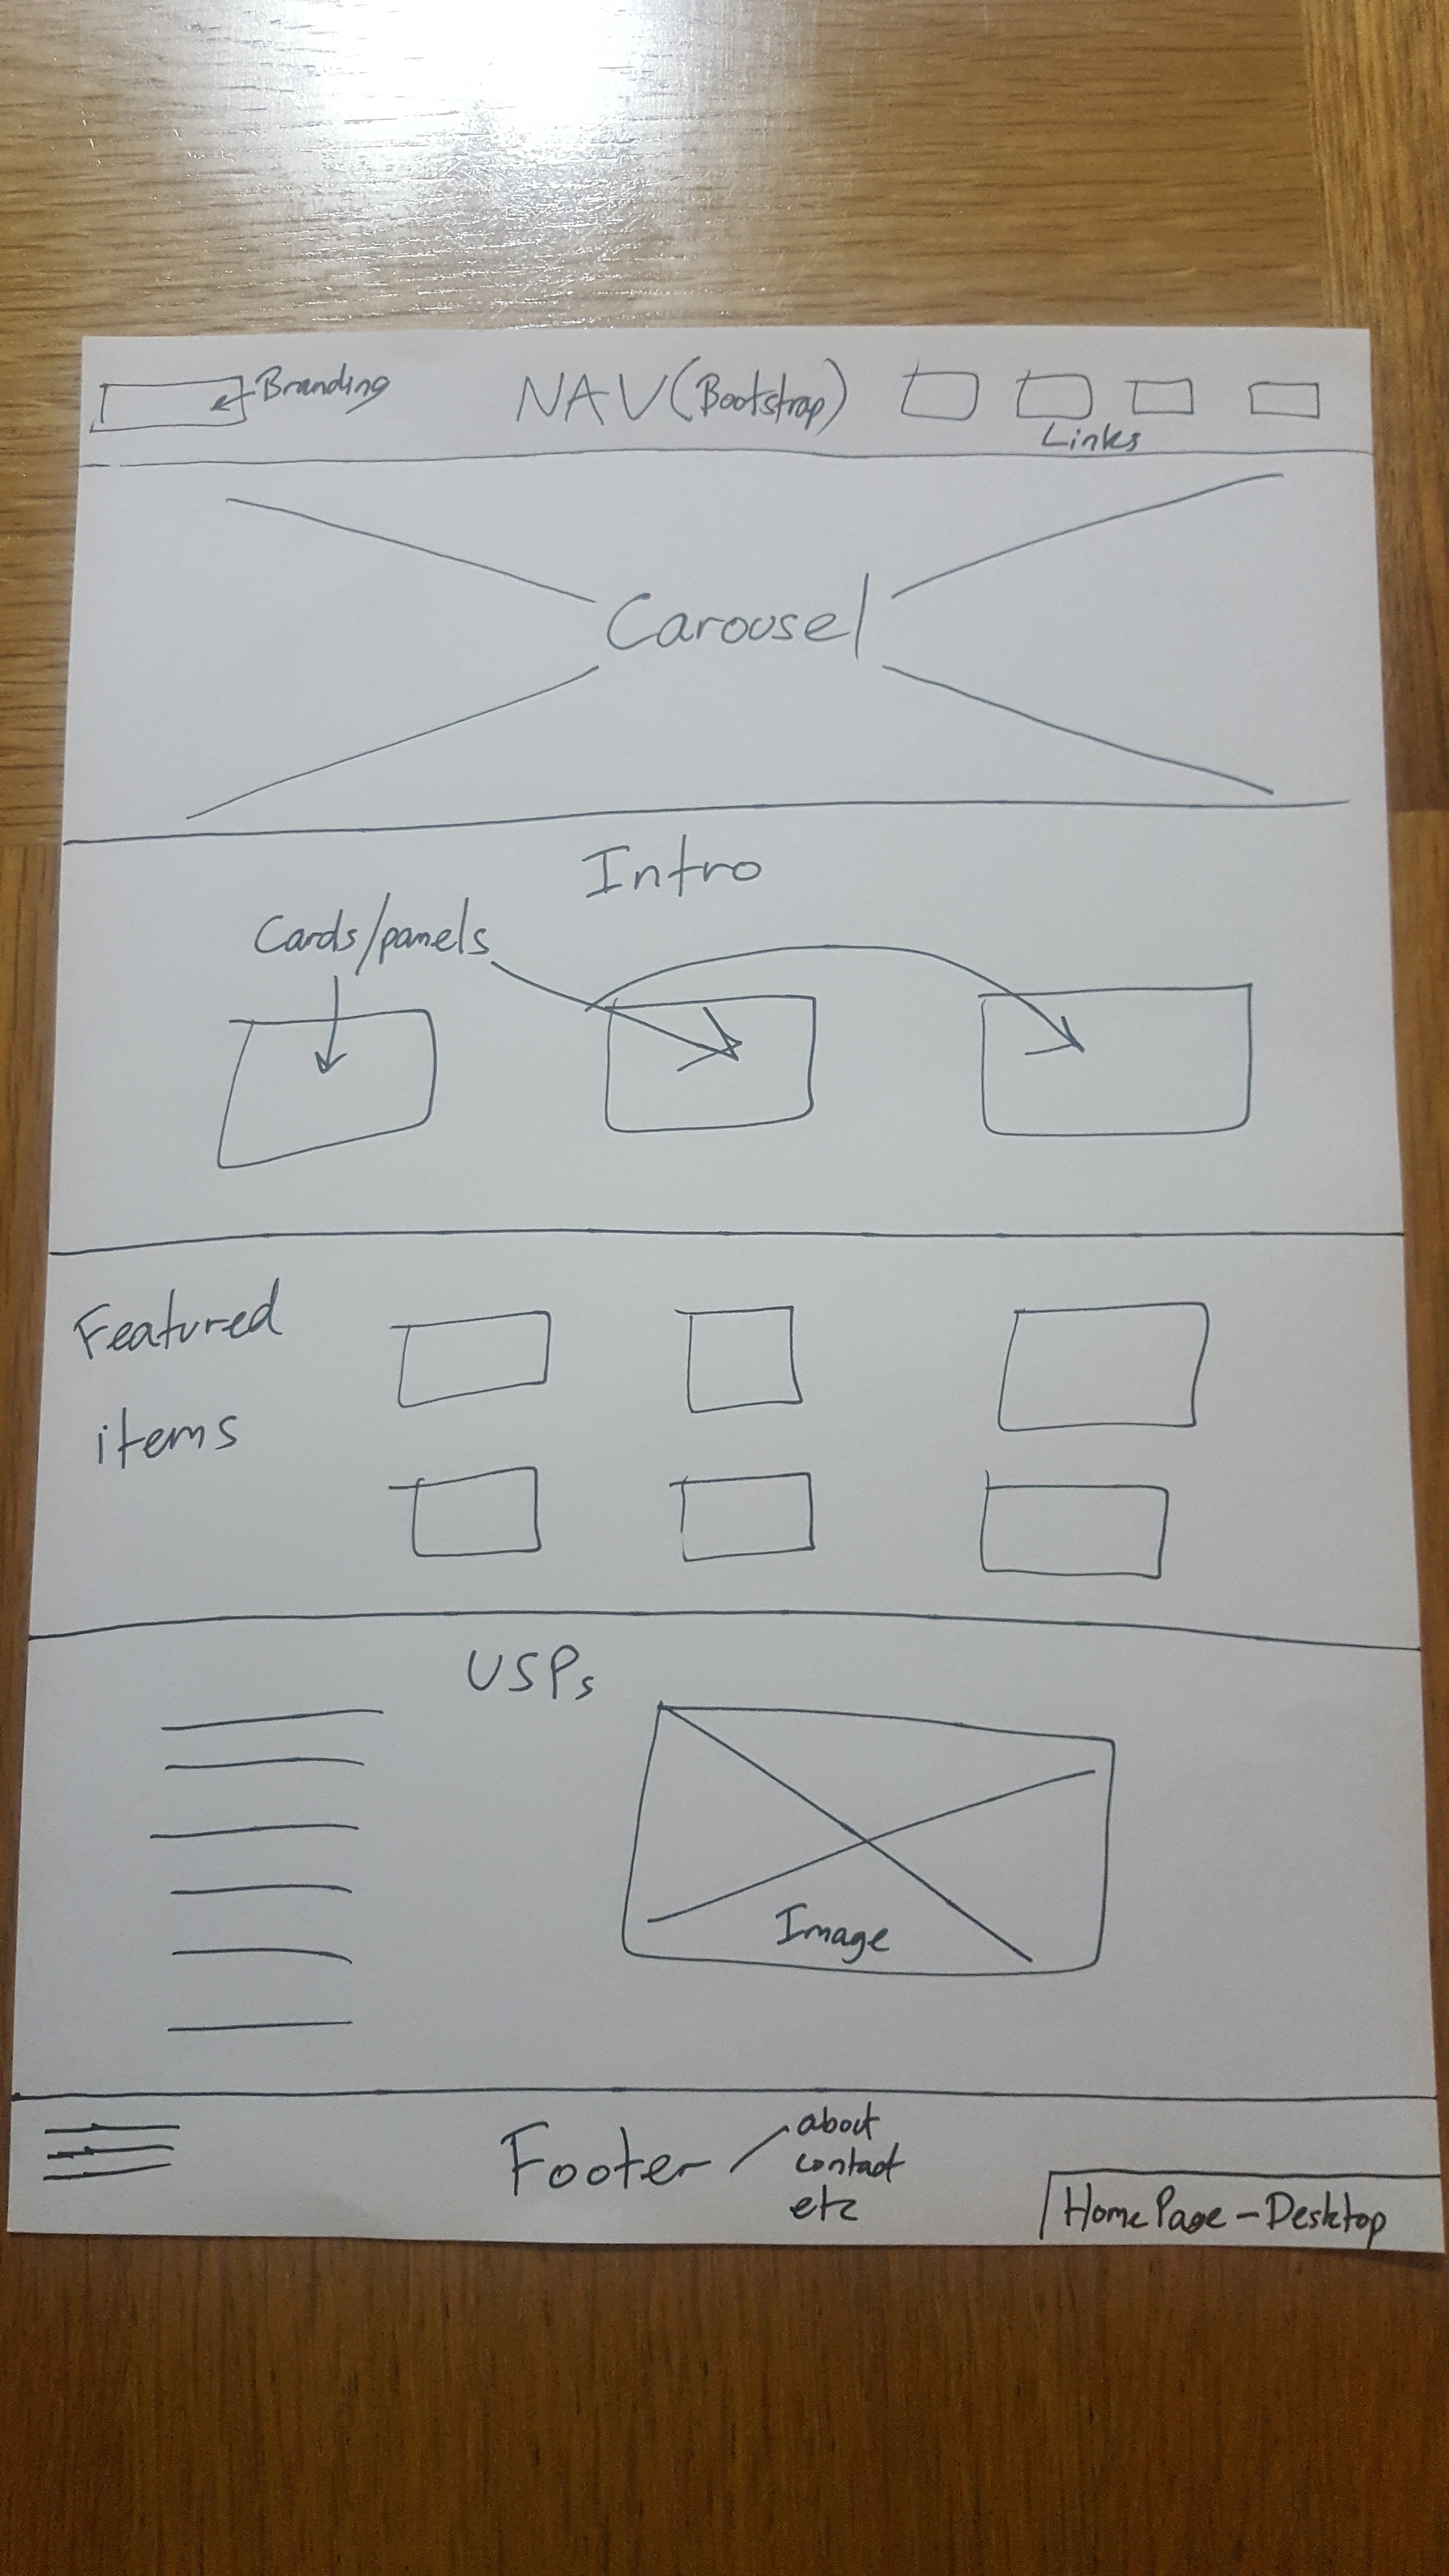 Branding
NAV (Bootstrap)
Links
Carousel
Intro
Cards/panels
Featured
items
USPs
Image
Footer
about
contact
etc
Home Page - Desktop